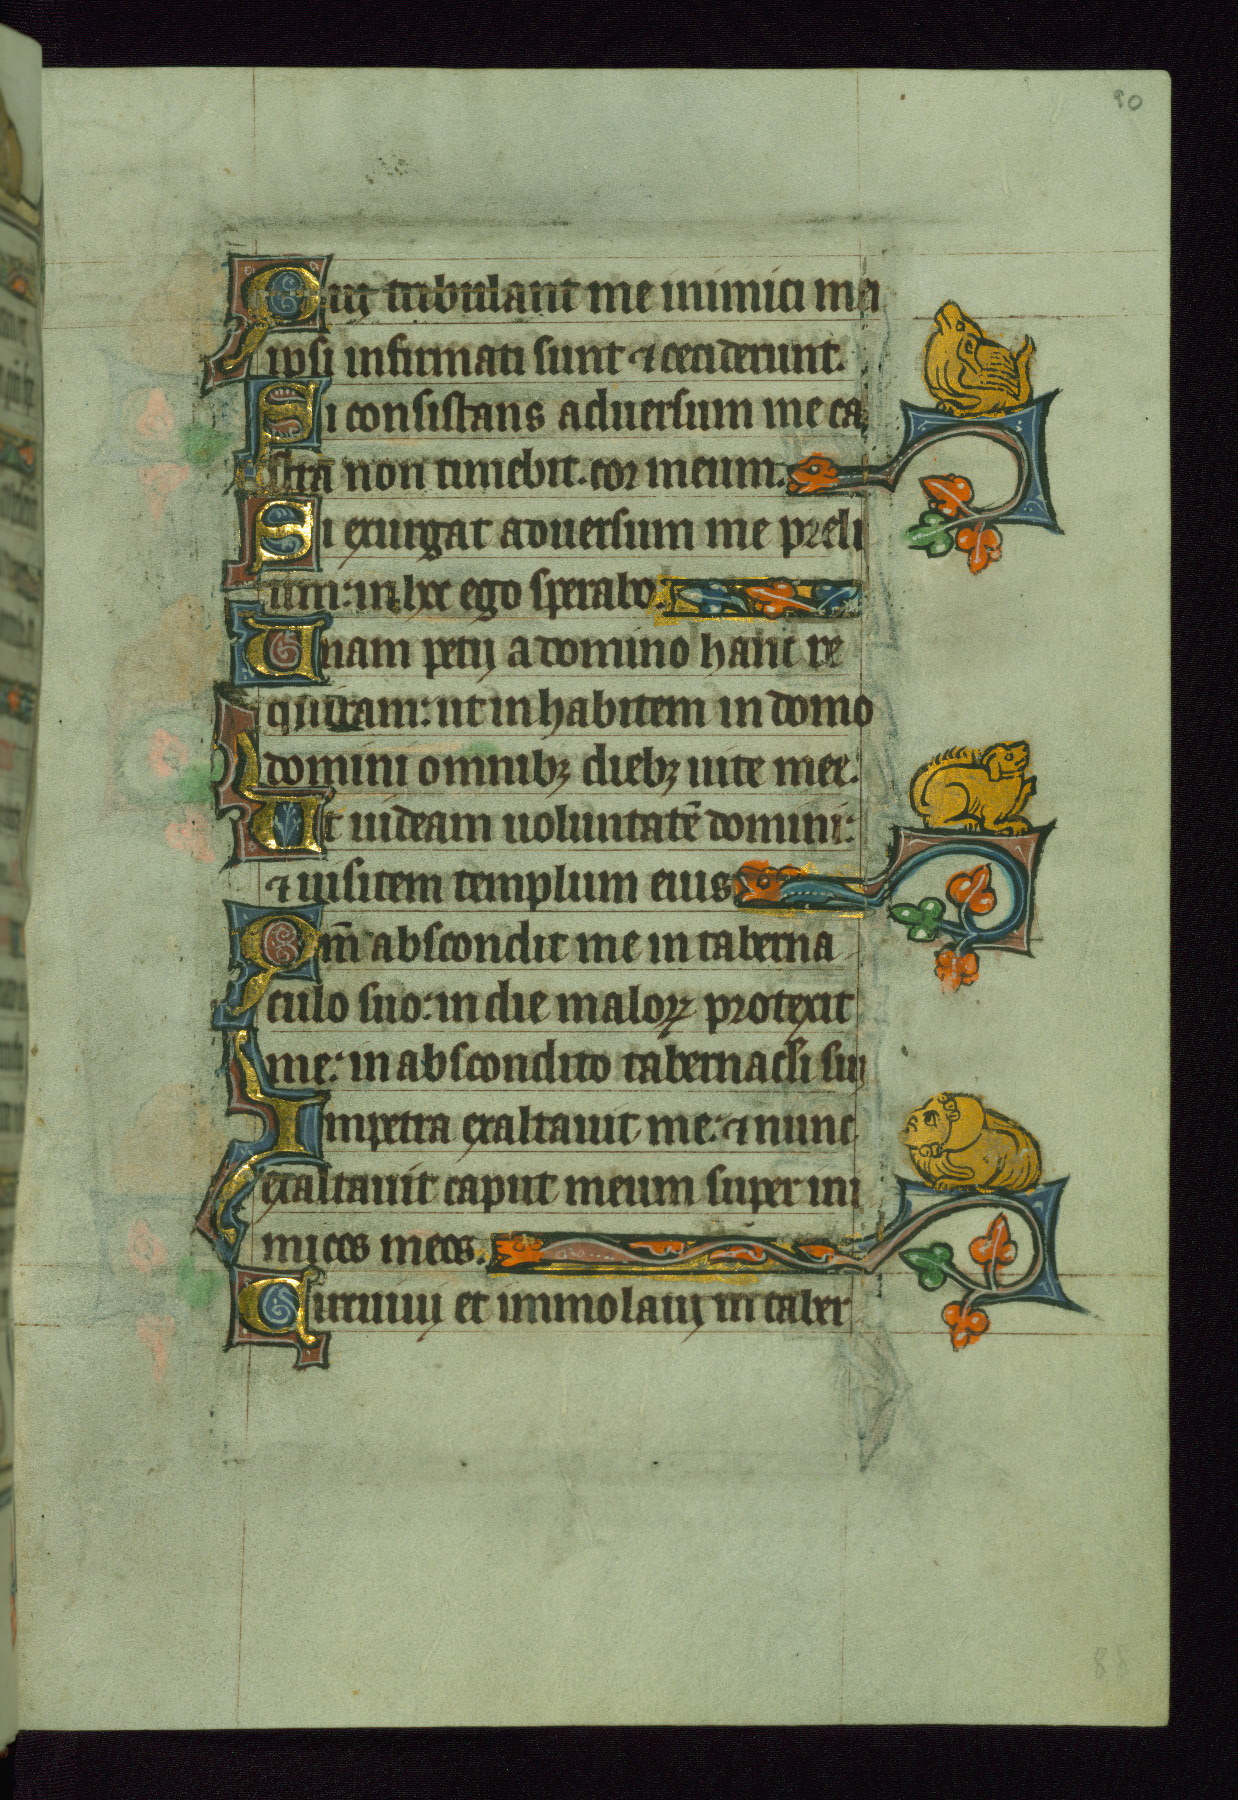 90
Qui tribulant me inimici mei
ipsi infirmati sunt ⁊ ceciderunt.
Si consistans aduersum me ca
stra non timebit. cor meum.
Si exurgat aduersum me preli
um: in hoc ego sperabo.
Unam petij a domino hanc re
quiram: ut inhabitem in domo
domini omnibꝫ diebꝫ uite mee.
Ut uideam uoluntatē domini:
⁊ uisitem templum eius
Qm̄ abscondit me in taberna
culo suo: in die maloꝝ protexit
me: in abscondito tabernacli sui
In petra exaltauit me: ⁊ nunc
exaltauit caput meum super ini
micos meos.
Circuiui et immolaui in taber
88